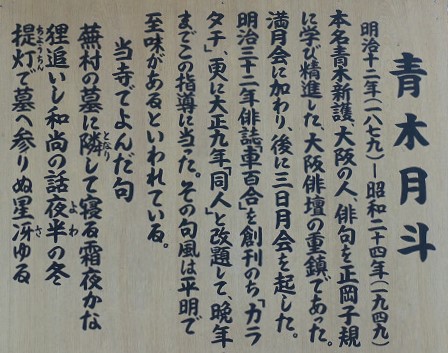 青木月斗
明治十二年(一八七九)ー昭和二十四年(一九四九)
本名青木新護、大阪の人、俳句を正岡子規
に学び精進した、大阪俳壇の重鎮であった。
満月会に加わり、後に三日月会を起した。
明治三十二年俳誌「車百合」を創刊のち「カラ
タチ」、更に大正九年「同人」と改題して、晩年
までこの指導に当った。その句風は平明で
至味があるといわれている。
当寺でよんだ句
蕪村の墓に隣して寝る霜夜かな
となり
狸追いし和尚の話夜半の冬
よわ
提灯で墓へ参りぬ星冴ゆる
ちょうちん
さ